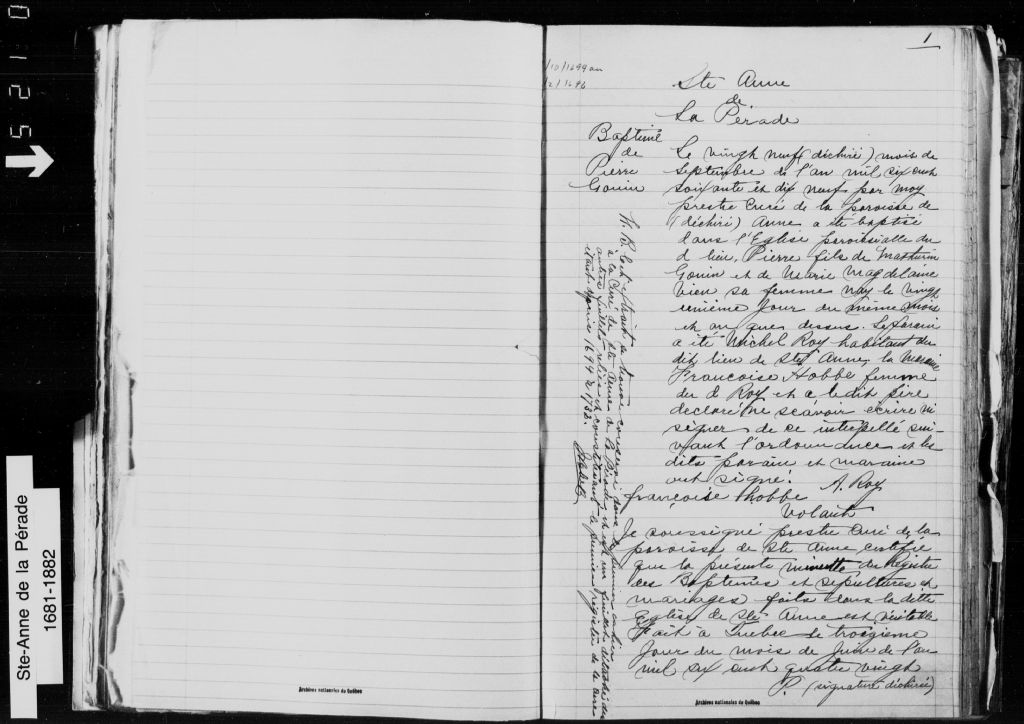 5210
Ste-Anne de la Pérade
1681-1882
1
/10/1699 au
/2/1696
Ste Anne
de
La Pérade
Baptême
de
Pierre
Gouin
Le vingt neuf (déchiré) mois de
Septembre de l'an mil six cent
soixante et dix neuf par moy
prestre curé de la paroisse de
(déchiré) Anne a été baptisé
dans l'Eglise paroissialle du
d lieu, Pierre fils de Mathurin
Gouin et de Marie Magdelaine
Vien sa femme nay le vingt
unième jour du même mois
et an que dessus. Le parain
a été Michel Roy habitant du
dit lieu de Ste Anne, la maraine
Francoise Hobbé femme
du d Roy et a le dit père
declaré ne scavoir écrire ni
signer de ce interpellé sui-
vant l'ordonnance et les
dits parain et maraine
ont signé. A. Roy
francoise hobbé
Volant
Je soussigné prestre curé de la
paroisse de Ste Anne certifie
que la présente minutte du Registre
des Baptêmes et sepultures et
mariages faits dans la ditte
Eglise de Ste Anne est véritable
Fait à Quebec le troisieme
Jour du mois de Juin de l'an
mil six cent quatre vingt
P. (signature déchirée)
N. B. Cet extrait a trouvé conservé dans
à la Cure de Ste Anne de la Pérade et
autres feuillets reliés et constituant le premier registre de la cure
1694 à 1733.
Archives nationales du Québec
Archives nationales du Québec